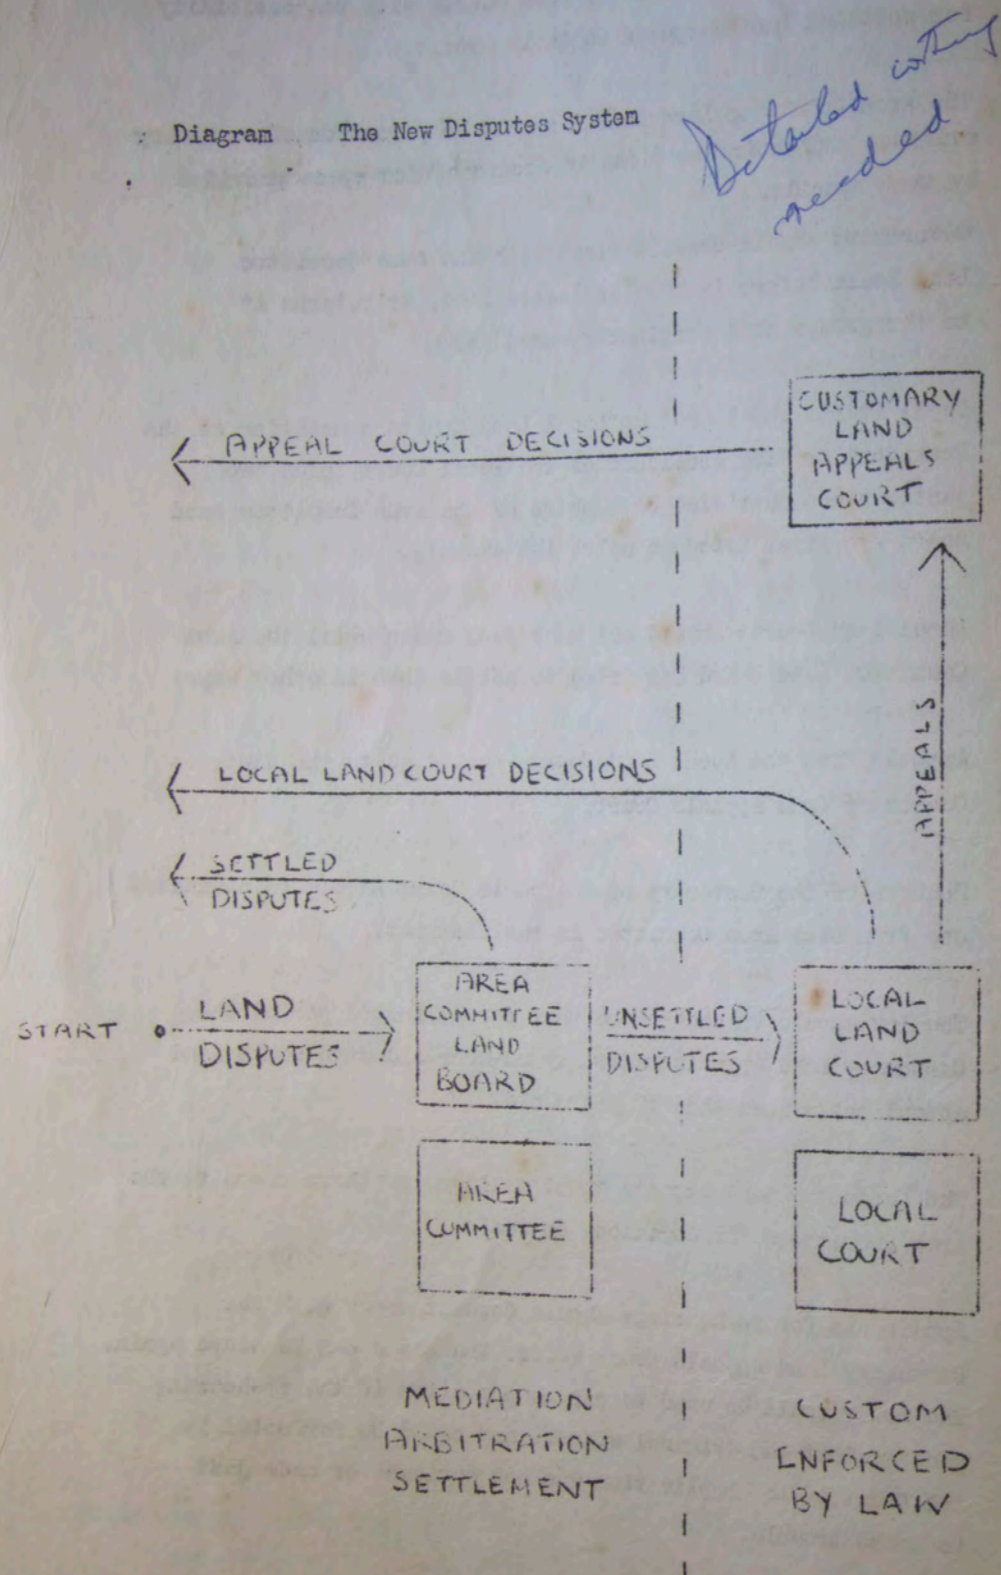 Diagram The New Disputes System
Detailed costing
needed
CUSTOMARY
LAND
APPEALS
COURT
APPEAL COURT DECISIONS
APPEALS
LOCAL LAND COURT DECISIONS
SETTLED
DISPUTES
START
LAND
DISPUTES
AREA
COMMITTEE
LAND
BOARD
UNSETTLED
DISPUTES
LOCAL
LAND
COURT
AREA
COMMITTEE
LOCAL
COURT
MEDIATION
ARBITRATION
SETTLEMENT
CUSTOM
ENFORCED
BY LAW